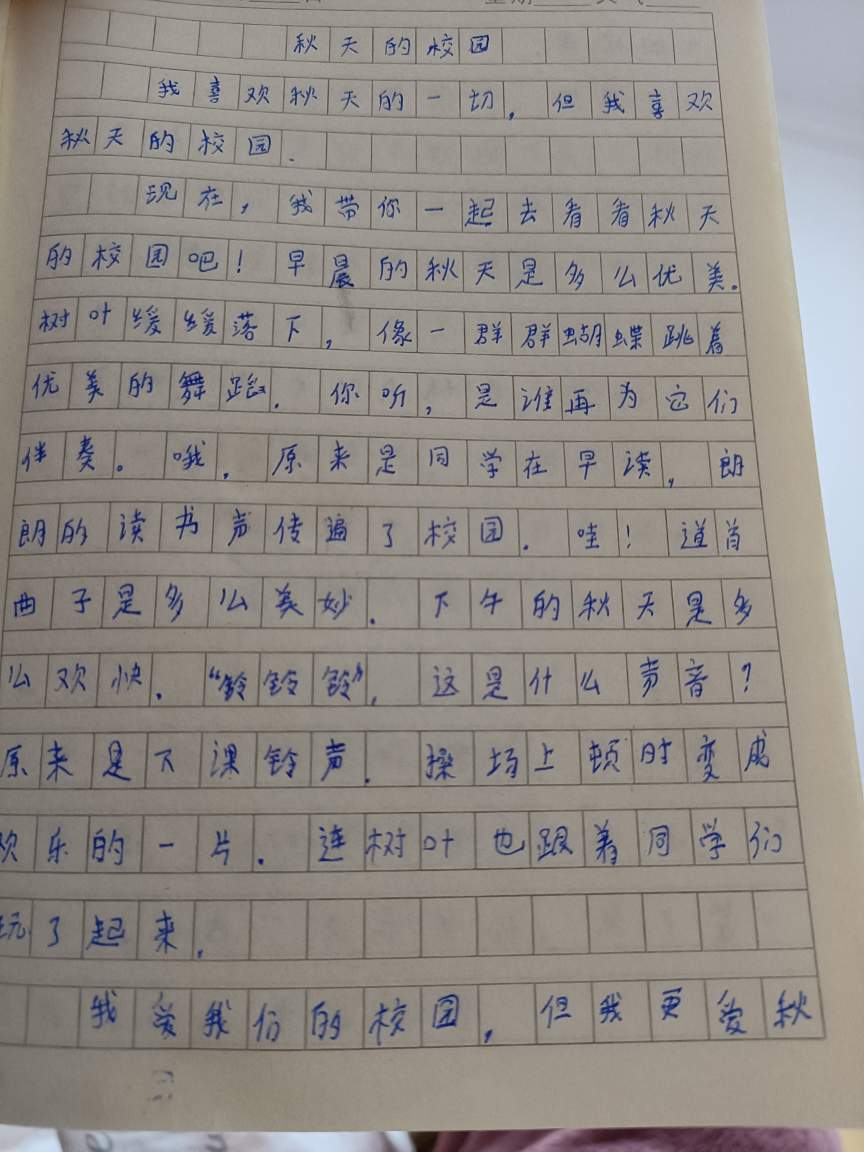 秋天的校园
我喜欢秋天的一切，但我喜欢
秋天的校园.
现在，我带你一起去看看秋天
的校园吧！早晨的秋天是多么优美.
树叶缓缓落下，像一群群蝴蝶跳着
优美的舞蹈.你听，是谁再为它们
伴奏。哦.原来是同学在早读，朗
朗的读书声传遍了校园.哇！道首
曲子是多么美妙.下午的秋天是多
么欢快.“铃铃铃”，这是什么声音？
原来是下课铃声.操场上顿时变成
欢乐的一片.连树叶也跟着同学们
玩了起来.
我爱我们的校园，但我更爱秋